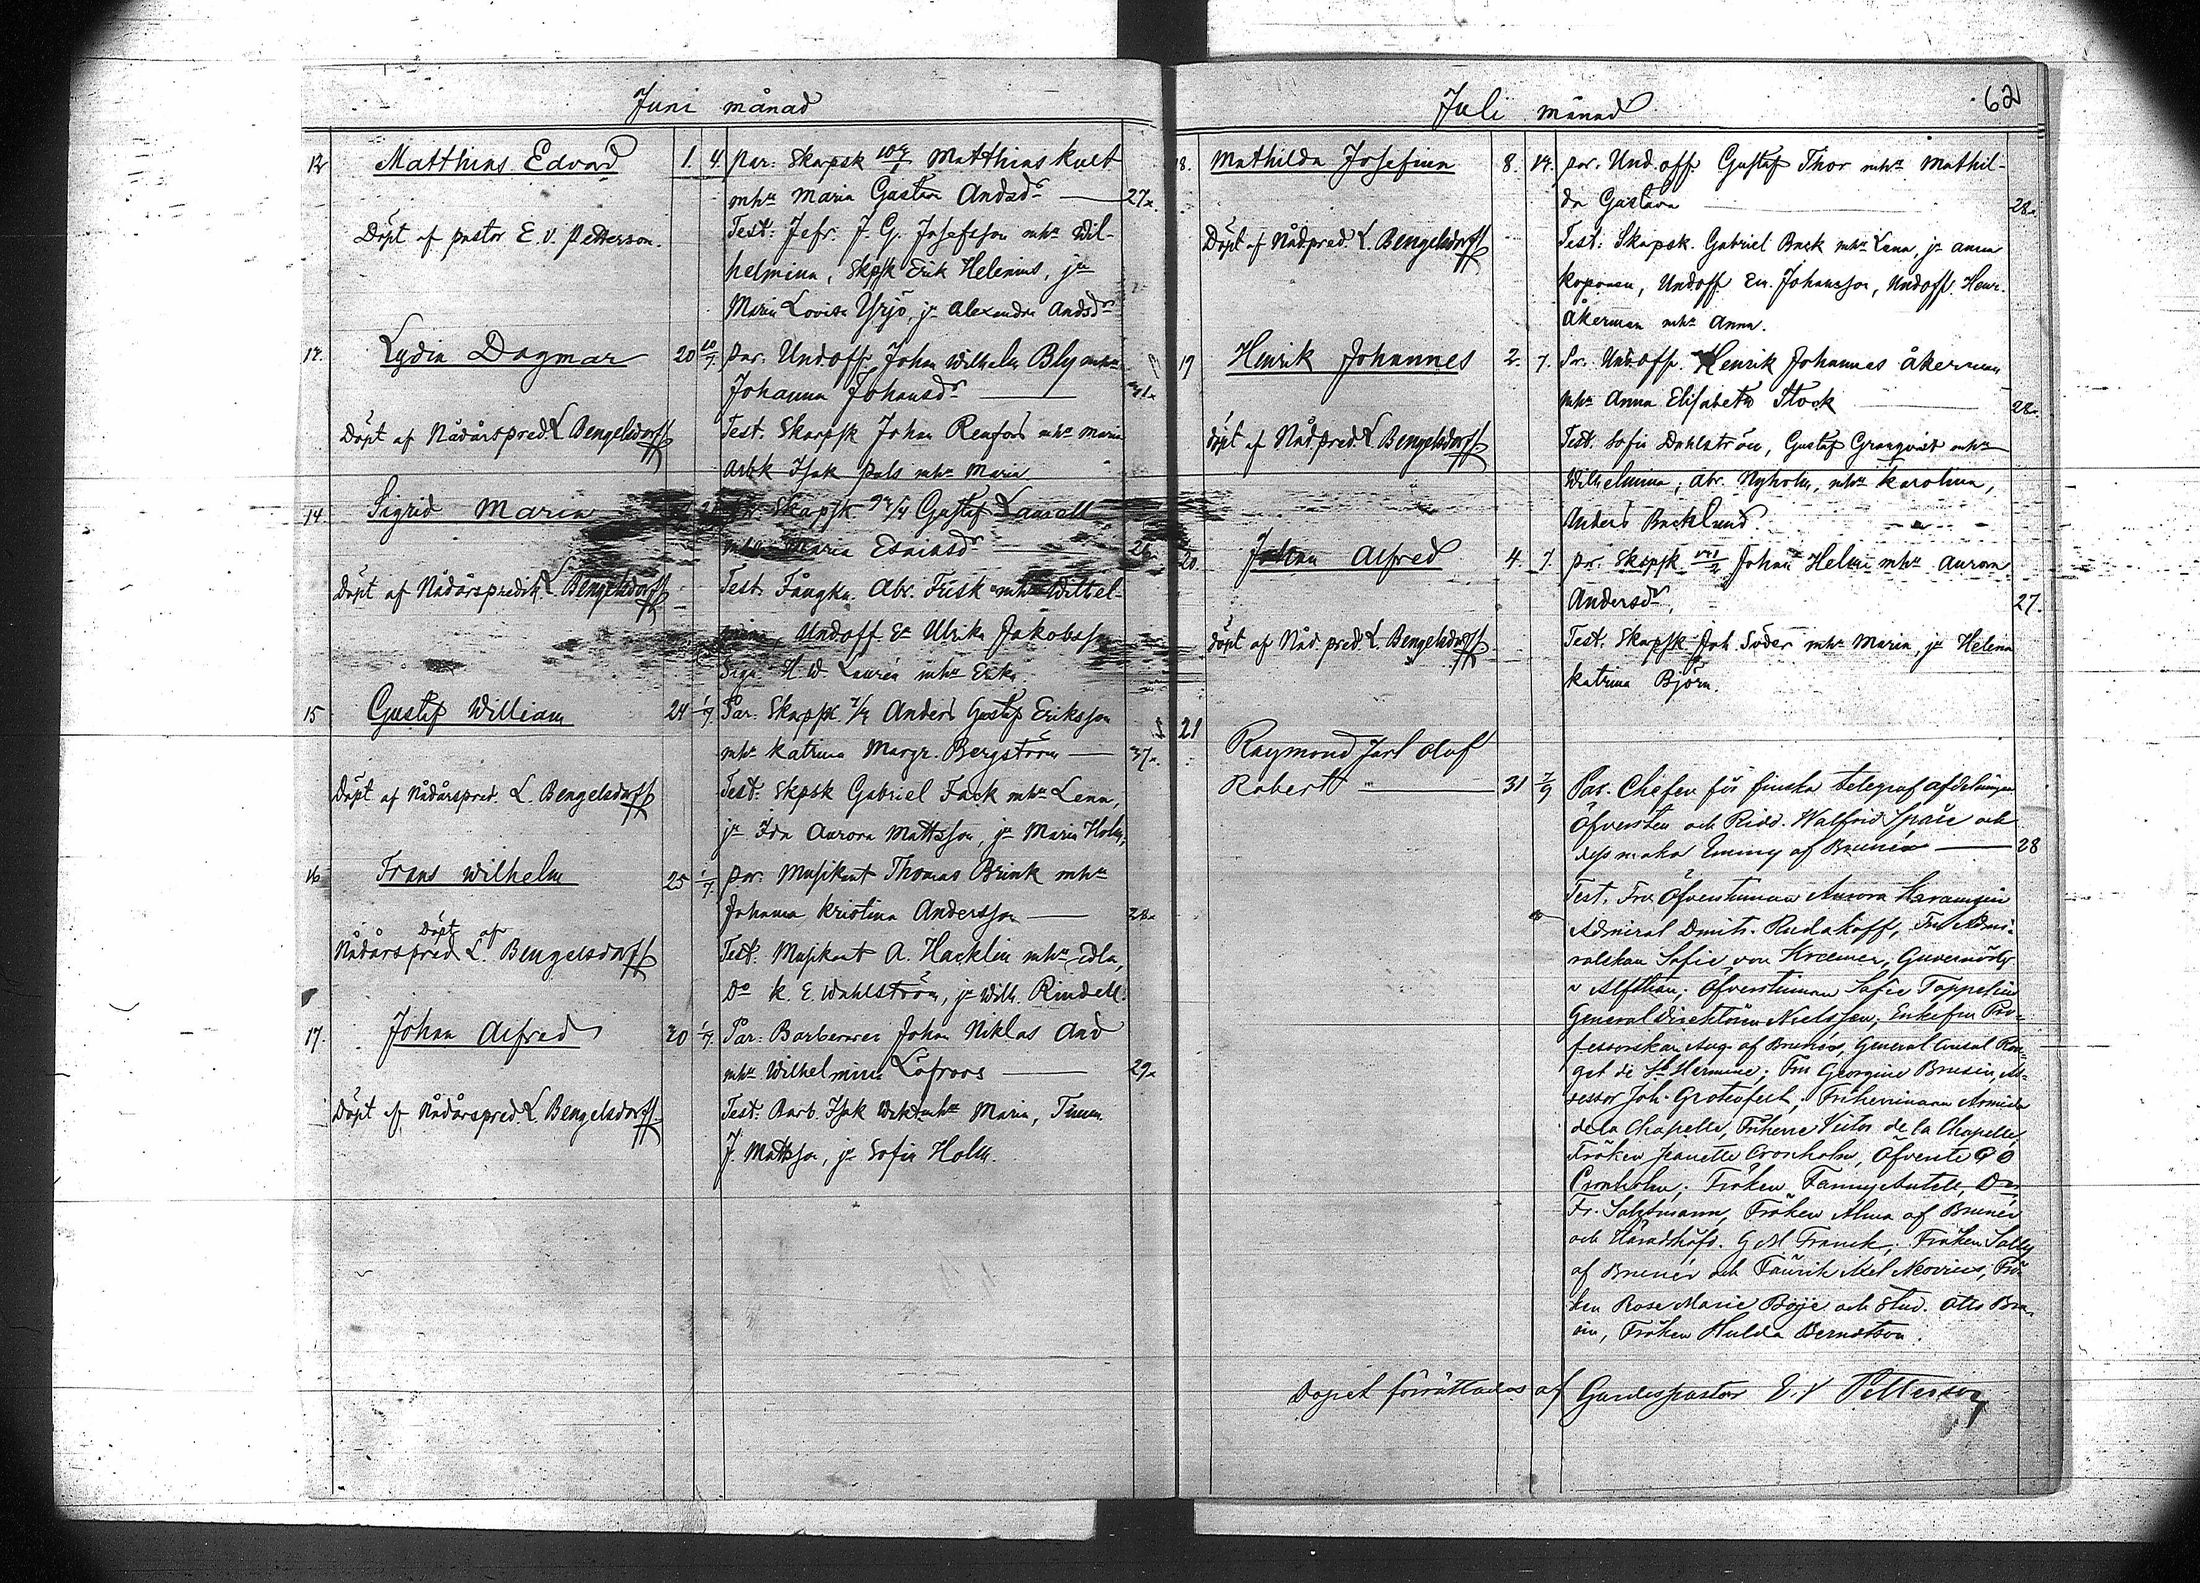 Juni månad
12 Matthias Edvard 1. 4. Par: Skarpsk 104/4 Matthias Kult
mhu Maria Gustava Andsdr 27.
Döpt af pastor E. V. Petterson.
Test: Jefr. J. G. Josefsson mhu Wil-
helmina, Skpsk Erik Helenius, jn
Maria Lovisa Yrjö, jn Alexandra Andsdr
Lydia Dagmar 20 Par. Undoff. Johan Wilhelm Bly mhu
Johanna Johansdr
Döpt af Nådårspred. L Bengelsdorff
Test. Skarpsk Johan Renfors mhu Maria
Arbk Isak Pals mhu Maria
14 Sigrid Maria Skarpsk Gustaf Laurell
mhu Maria 26.
Döpt af Nådårspredik. L Bengelsdorff
Test. Fångkn. Abr. Frisk mhu Wilhel-
mina, Undoff Er Ulrika Jakobsson
H. W. Laurén mhu Erika
15 Gustaf William 24 1/7 Par. Skarpsk 7/4 Anders Gustaf Eriksson
mhu Katrina Margr. Bergström 37.
Döpt af Nådårspred. L. Bengelsdorff
Test. Skpsk Gabriel Back mhu Lena,
jn Ida Aurora Mattsson, jn Maria Holm,
16 Frans Wilhelm 25 1/7. par. Musikant Thomas Brink mhu
Johanna Kristina Andersson 28.
Döpt af
Nådårspred L. Bengelsdorff
Test. Musikant A. Hacklin mhu Edla,
Do K. E. Wahlström, jn Wilh. Rindell.
17. Johan Alfred 20 1/7. Par: Barberare Johan Niklas And
mhu Wilhelmina Löfroos 29.
Döpt af Nådårspred. L. Bengelsdorff
Test. Barb. Isak mhu Maria, Timm.
J. Mattsson, jn Sofia Holm.
Juli månad 62
18. Mathilda Josefina 8. 14. par. Und.off. Gustaf Thor mhu Mathil-
da Gustava 28.
Döpt af Nådpred. L. Bengelsdorff
Test. Skarpsk. Gabriel Back mhu Lena, jn Anna
Koponen, Undoff Er. Johansson, Undoff. Henr.
Åkerman mhu Anna.
19 Henrik Johannes 2. 7. Par. Und.off. Henrik Johannes Åkerman
mhu Anna Elisabeth Stock 28.
Döpt af Nåd pred. L Bengelsdorff
Test. Sofia Dahlström, Gustaf Granqvist mhu
Wilhelmina, Abr. Nyholm, mhu Karolina,
Anders Backlund.
20. Johan Alfred 4. 7. par. Skpsk Johan Helin mhu Aurora
Andersdr. 27.
Döpt af Nåd. pred. L. Bengelsdorff
Test. Skarpsk Joh. Söder mhu Maria, jn Helena
Katrina Björn.
21
Raymond Jarl Oluf
Robert 31 7/9 Par. Chefen för finska telegraf afdelningen
Öfversten och Ridd. Walfrid Spåre och
dess maka Emmy af Brunér 28
Test. Fru Öfverstinnan Aurora Karamzin
Admiral Dmitr. Rudakoff, Fru Ami-
ralskan Sofie von Kræmer, Guvernören
v Alfthan; Öfverstinnan Sofie Toppelius
General direktören Nielssen, Enkefru Pro-
fessorskan Aug. af Brunér, General Consul
get de St Hermine; Fru Georgine Brusin, As-
sessor Joh. Grotenfelt, Friherrinnan Armida
de la Chapelle, Friherre Victor de la Chapelle,
Fröken Jeanette Cronholm, Öfverste
Cronholm; Fröken Fanny Antell, Dr
Fr. Saltzmann, Fröken Alma af Brunér
och Häradshöfd. G M Franck; Fröken Sally
af Brunér och Fänrik Axel Neovius, Frö-
ken Rose Marie Boije och Stud. Otto Bru-
sin, Fröken Hulda Berndtson.
Dopet förrättades af Gardespastor E. V Petterson